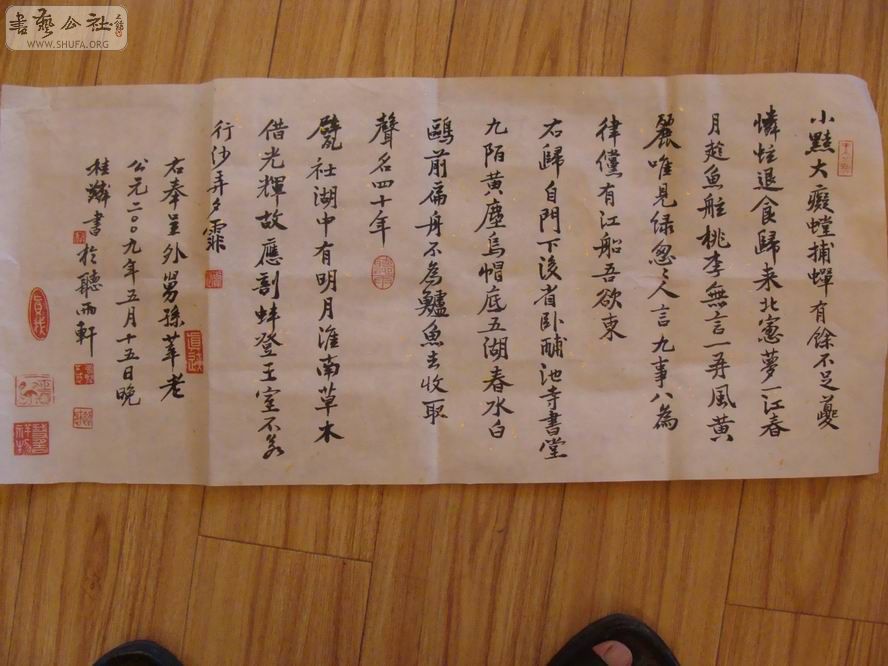 書藝公社
WWW.SHUFA.ORG
小黠大癡螳捕蟬有餘不足夔
憐蚿退食歸来北窓夢一江春
月趂魚舡桃李無言一再風黄
麗唯見绿怱〻人言九事八為
律儻有江船吾欲東
右歸自門下後省卧酺池寺書堂
九陌黄塵烏帽底五湖春水白
鷗前扁舟不為鱸魚去收取
聲名四十年
甓社湖中有明月淮南草木
借光輝故應剖蚌登王室不若
行沙弄夕霏
右奉呈外舅孫莘老
公元二〇〇九年五月十五日晚
桂書於聽雨軒